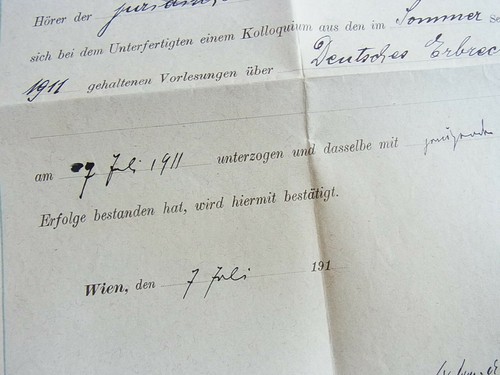 Hörer der juridisch
sich bei dem Unterfertigten einem Kolloquium aus den im Sommer se
1911 gehaltenen Vorlesungen über Deutsches Erbrec
am 7 Juli 1911 unterzogen und dasselbe mit
Erfolge bestanden hat, wird hiermit bestätigt.
Wien, den 7 Juli 191